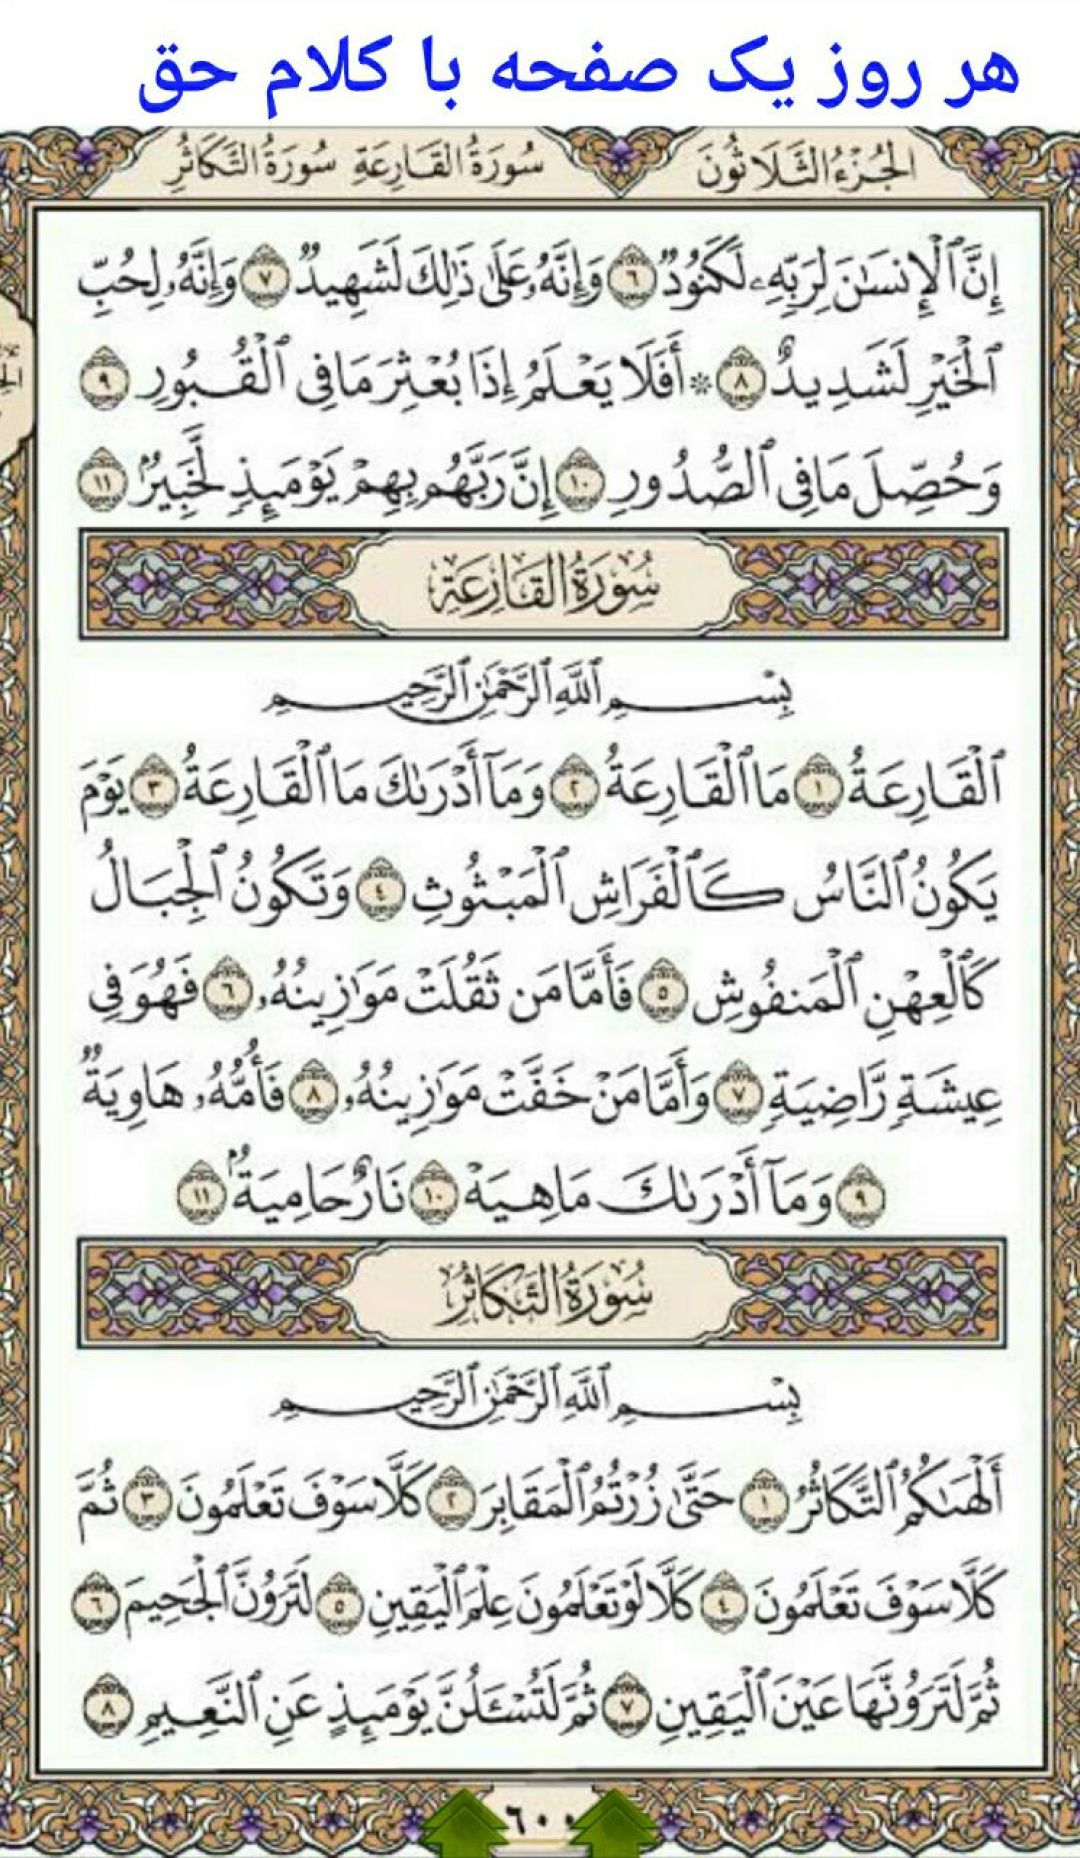 هر روز یک صفحه با کلام حق
الجُزْءُ الثَّلَاثُونَ سُورَةُ القَارِعَةِ سُورَةُ التَّكَاثُرِ
إِنَّ ٱلْإِنسَٰنَ لِرَبِّهِۦ لَكَنُودٌ ٦ وَإِنَّهُۥ عَلَىٰ ذَٰلِكَ لَشَهِيدٌ ٧ وَإِنَّهُۥ لِحُبِّ
ٱلْخَيْرِ لَشَدِيدٌ ٨ * أَفَلَا يَعْلَمُ إِذَا بُعْثِرَ مَا فِى ٱلْقُبُورِ ٩
وَحُصِّلَ مَا فِى ٱلصُّدُورِ ١٠ إِنَّ رَبَّهُم بِهِمْ يَوْمَئِذٍ لَّخَبِيرٌۢ ١١
سُورَةُ القَارِعَةِ
بِسْمِ ٱللَّهِ ٱلرَّحْمَٰنِ ٱلرَّحِيمِ
ٱلْقَارِعَةُ ١ مَا ٱلْقَارِعَةُ ٢ وَمَآ أَدْرَىٰكَ مَا ٱلْقَارِعَةُ ٣ يَوْمَ
يَكُونُ ٱلنَّاسُ كَٱلْفَرَاشِ ٱلْمَبْثُوثِ ٤ وَتَكُونُ ٱلْجِبَالُ
كَٱلْعِهْنِ ٱلْمَنفُوشِ ٥ فَأَمَّا مَن ثَقُلَتْ مَوَٰزِينُهُۥ ٦ فَهُوَ فِى
عِيشَةٍ رَّاضِيَةٍ ٧ وَأَمَّا مَنْ خَفَّتْ مَوَٰزِينُهُۥ ٨ فَأُمُّهُۥ هَاوِيَةٌ
٩ وَمَآ أَدْرَىٰكَ مَا هِيَهْ ١٠ نَارٌ حَامِيَةٌۢ ١١
سُورَةُ التَّكَاثُرِ
بِسْمِ ٱللَّهِ ٱلرَّحْمَٰنِ ٱلرَّحِيمِ
أَلْهَىٰكُمُ ٱلتَّكَاثُرُ ١ حَتَّىٰ زُرْتُمُ ٱلْمَقَابِرَ ٢ كَلَّا سَوْفَ تَعْلَمُونَ ٣ ثُمَّ
كَلَّا سَوْفَ تَعْلَمُونَ ٤ كَلَّا لَوْ تَعْلَمُونَ عِلْمَ ٱلْيَقِينِ ٥ لَتَرَوُنَّ ٱلْجَحِيمَ ٦
ثُمَّ لَتَرَوُنَّهَا عَيْنَ ٱلْيَقِينِ ٧ ثُمَّ لَتُسْـَٔلُنَّ يَوْمَئِذٍ عَنِ ٱلنَّعِيمِ ٨
٦٠٠